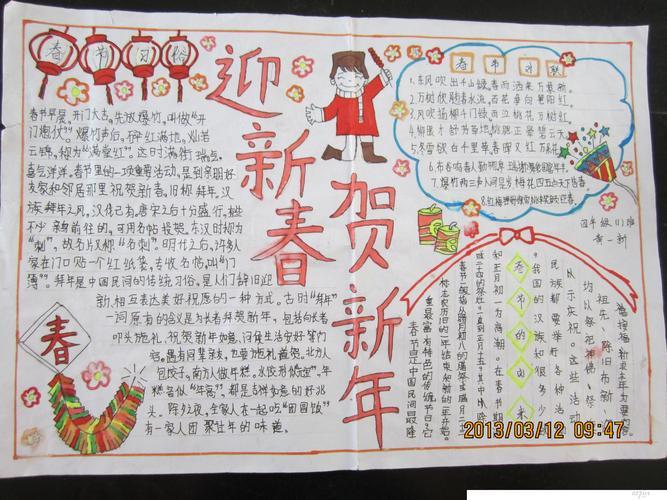 春节习俗
迎新春
贺新年
春节早晨，开门大吉，先放爆竹，叫做“开
门炮仗”。爆竹声后，碎红满地，灿若
云锦，称为“满堂红”。这时满街瑞气，
喜气洋洋。春节里的一项重要活动，是到亲朋好
友家和邻居那里祝贺新春。旧称拜年。汉
族拜年之风，汉代已有。唐宋之后十分盛行，
不必亲身前往的，可用名帖投贺。东汉时称为
“刺”，故名片又称“名刺”。明代之后，许多人
家在门口贴一个红纸袋，专收名帖，叫“门
簿”。拜年是中国民间的传统习俗，是人们辞旧迎
新、相互表达美好祝愿的一种方式。古时“拜年”
一词原有的含义是为长者拜贺新年，包括向长者
叩头施礼、祝贺新年如意、问候生活安好等内
容。遇有同辈亲友，也要施礼道贺。北方人
包饺子，南方人做年糕。水饺形似“元宝”，年
糕名似“年高”，都是吉祥如意的好兆
头。除夕之夜，全家人在一起吃“团圆饭”
有一家人团聚过年的味道。
春
春节对联
1.东风吹出千山绿，春雨洒来万象新。
2.万树欣荣春水流，百花争向艳阳红。
3.风吹杨柳千门绿，雨润桃花万树红。
5.冬雪欲白千里草，春雨又红万朵花
四年级(1)班
春节的由来
春节是中国民间最隆
重最富有特色的传统节日，它
标志农历旧的一年结束和新的一年开始。
春节一般指
和正月初一为高潮。在春节期
间，我国的汉族和很多少
民族都要举行各种活动
以示庆祝。这些活动
均以祭祀神佛、祭
祖先、除旧布新
福祈求丰年为主要内容。
2013/03/12 09:47